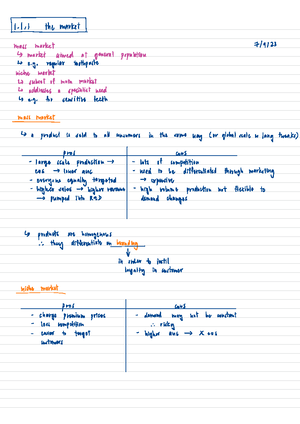 1.1.1 the market
7/9/23
mass market
↳ market aimed at general population
↳ e.g. regular toothpaste
niche market
↳ subset of main market
↳ addresses a specialist need
↳ e.g. for sensitive teeth
mass market
↳ a product is sold to all customers in the same way (on global scale w lang tweaks)
pros
- large scale production →
EOS → lower AVC
- everyone equally targeted
- higher sales → higher revenue
→ pumped into R&D
cons
- lots of competition
- need to be differentiated through marketing
→ expensive
- high volume production not flexible to
demand changes
↳ products are homogenous
∴ they differentiate on branding
in order to instil
loyalty in customer
niche market
pros
- charge premium prices
- less competition
- easier to target
customers
cons
- demand may not be constant
∴ risky
- higher AVC → X EOS